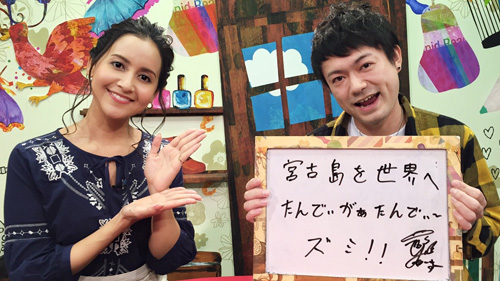 宮古島を世界へ
たんでぃがぁたんでぃ〜
ズミ!!